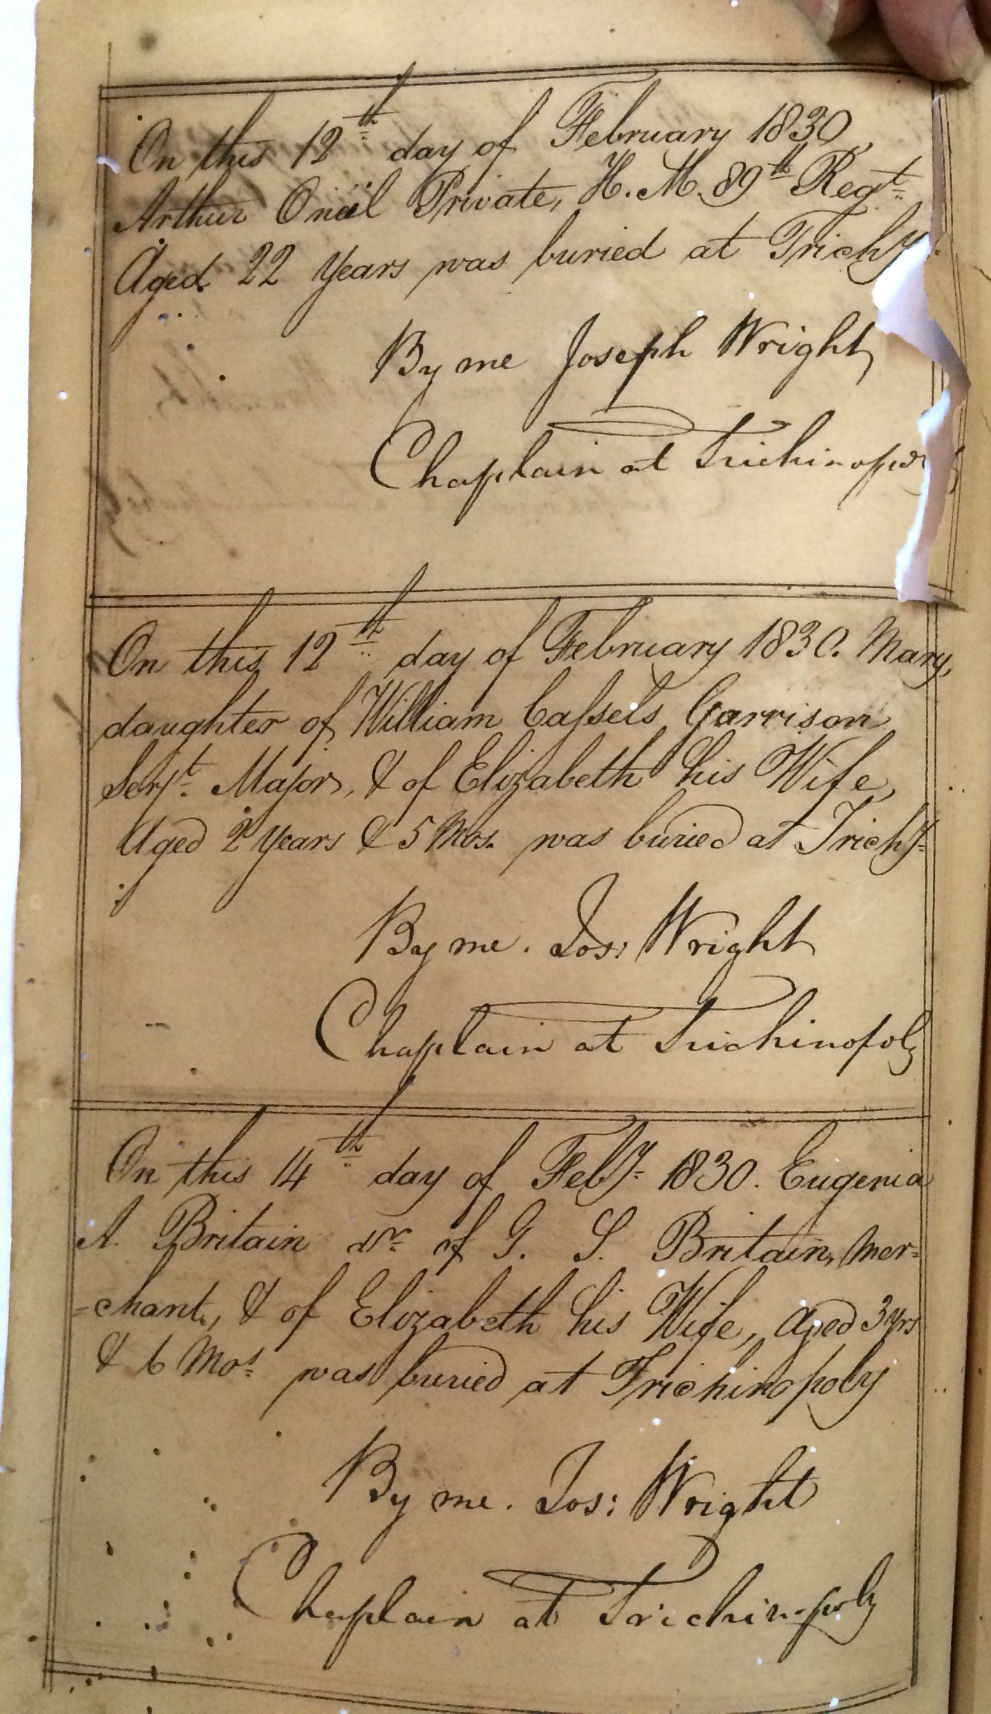 On this 12th day of February 1830
Arthur Oneil Private, H. M. 89th Regt
Aged 22 Years was buried at Trichy
By me Joseph Wright
Chaplain at Trichinopo
On this 12th day of February 1830. Mary,
daughter of William Cassels Garrison
Serjt. Major, & of Elizabeth his Wife,
Aged 2 Years & 5 Mos. was buried at Trichy
By me. Jos: Wright
Chaplain at Trichinopoly
On this 14th day of Feby. 1830. Eugenia
A. Britain dr. of G. S. Britain, Mer-
-chant, & of Elizabeth his Wife, Aged 3 yrs
& 6 Mos. was buried at Trichinopoly
By me. Jos: Wright
Chaplain at Trichinopoly